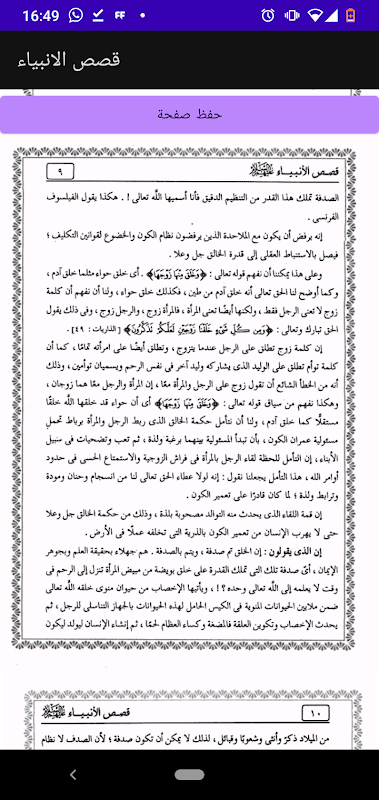 16:49
قصص الانبياء
حفظ صفحة
قصص الأنبياء ٩
الصدفة تملك هذا القدر من التنظيم الدقيق فأنا أسميها الله تعالى ! . هكذا يقول الفيلسوف
الفرنسى .
إنه يرفض أن يكون مع الملاحدة الذين يرفضون نظام الكون والخضوع لقوانين التكليف ؛
فيصل بالاستنباط العقلى إلى قدرة الخالق جل وعلا .
وعلى هذا يمكننا أن نفهم قوله تعالى : ﴿وَخَلَقَ مِنْهَا زَوْجَهَا﴾ . أى خلق حواء مثلما خلق آدم ،
وكما أوضح لنا الحق تعالى أنه خلق آدم من طين ، فكذلك خلق حواء ، ولنا أن نفهم أن كلمة
زوج لا تعنى الرجل فقط ، ولكنها أيضًا تعنى المرأة ، فالمرأة زوج ، والرجل زوج ، وفى ذلك يقول
الحق تبارك وتعالى : ﴿وَمِن كُلِّ شَيْءٍ خَلَقْنَا زَوْجَيْنِ لَعَلَّكُمْ تَذَكَّرُونَ﴾ [ الذاريات : ٤٩] .
إن كلمة زوج تطلق على الرجل عندما يتزوج ، وتطلق أيضًا على امرأته تمامًا ، كما أن
كلمة توأم تطلق على الوليد الذى يشاركه وليد آخر فى نفس الرحم ويسميان توأمين ، وذلك
أنه من الخطأ الشائع أن نقول زوج على الرجل والمرأة معًا ، إن المرأة والرجل معًا هما زوجان ،
وهكذا نفهم من سياق قوله تعالى : ﴿وَخَلَقَ مِنْهَا زَوْجَهَا﴾ أى أن حواء قد خلقها الله خلقًا
مستقلًا كما خلق آدم ، ولنا أن نتأمل حكمة الخالق الذى ربط الرجل والمرأة برباط تحمل
مسئولية عمران الكون ، بأن تبدأ المسئولية بينهما برغبة ولذة ، ثم تعب وتضحيات فى سبيل
الأبناء ، إن التأمل للحظة لقاء الرجل بالمرأة فى فراش الزوجية والاستمتاع الحسى فى حدود
أوامر الله ، هذا التأمل يجعلنا نقول : إنه لولا عطاء الحق تعالى لنا من انسجام وحنان ومودة
وترابط ولذة ؛ لما كان قادرًا على تعمير الكون .
إن قمة اللقاء الذى يحدث منه التوالد مصحوبة بلذة ، وذلك من حكمة الخالق جل وعلا
حتى لا يهرب الإنسان من تعمير الكون بالذرية التى تخلفه عملًا فى الأرض .
إن الذى يقولون : إن الخلق تم صدفة ، ويتم بالصدفة . هم جهلاء بحقيقة العلم وبجوهر
الإيمان ، أىّ صدفة تلك التى تملك القدرة على خلق بويضة من مبيض المرأة تنزل إلى الرحم فى
وقت لا يعلمه إلى الله تعالى وحده ؟! ، ويأتيها الإخصاب من حيوان منوى خلقه الله تعالى
ضمن ملايين الحيوانات المنوية فى الكيس الحامل لهذه الحيوانات بالجهاز التناسلى للرجل ، ثم
يحدث الإخصاب وتكوين العلقة فالمضغة وكساء العظام لحمًا ، ثم إنشاء الإنسان ليولد ليكون
١٠ قصص الأنبياء
من الميلاد ذكرٌ وأنثى وشعوبًا وقبائل ، لذلك لا يمكن أن تكون صدفة ؛ لأن الصدف لا نظام